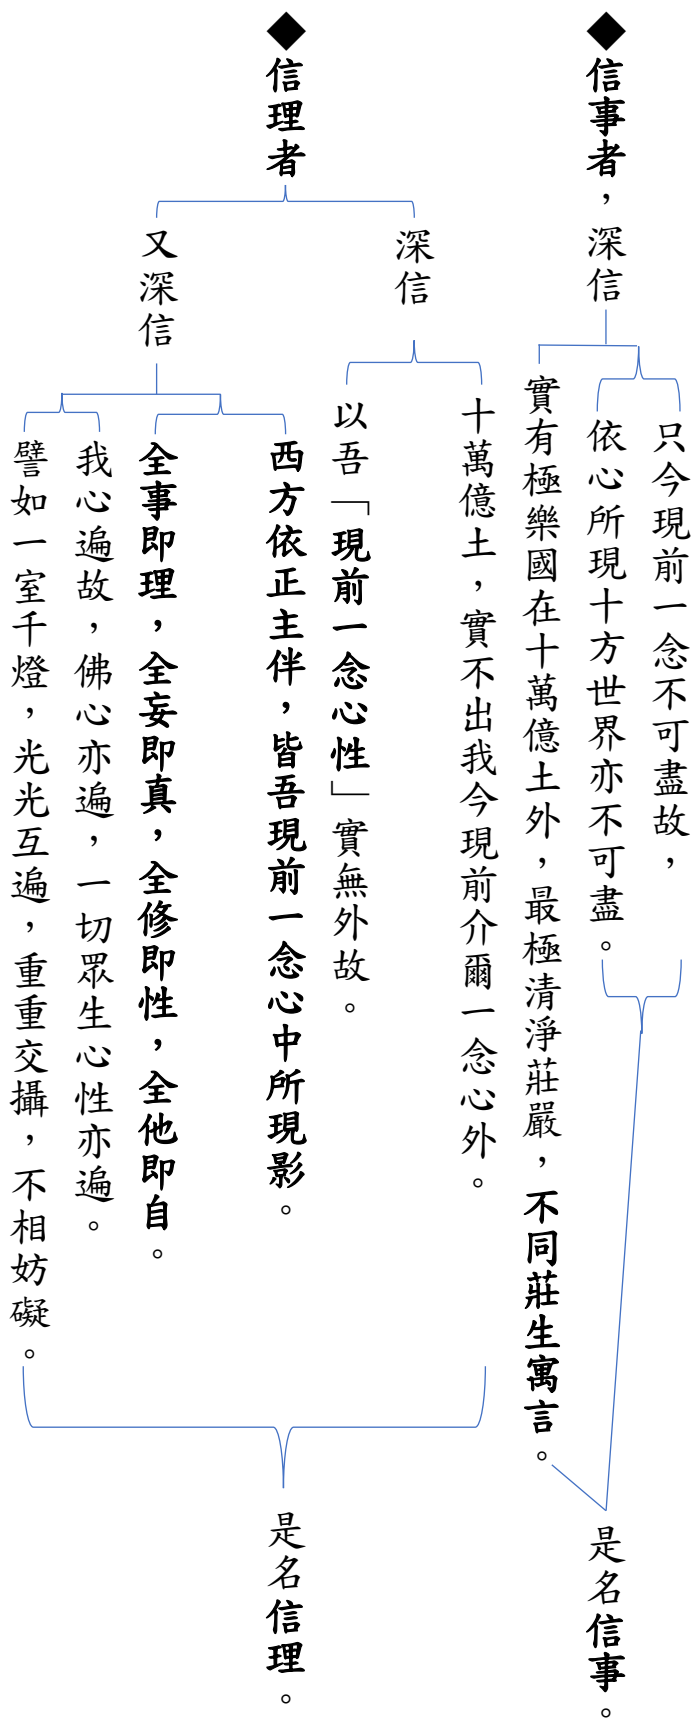 ◆信事者，深信
只今現前一念不可盡故，
依心所現十方世界亦不可盡。
實有極樂國在十萬億土外，最極清淨莊嚴，不同莊生寓言。
是名信事。
◆信理者
深信
十萬億土，實不出我今現前介爾一念心外。
以吾「現前一念心性」實無外故。
又深信
西方依正主伴，皆吾現前一念心中所現影。
全事即理，全妄即真，全修即性，全他即自。
我心遍故，佛心亦遍，一切眾生心性亦遍。
譬如一室千燈，光光互遍，重重交攝，不相妨礙。
是名信理。